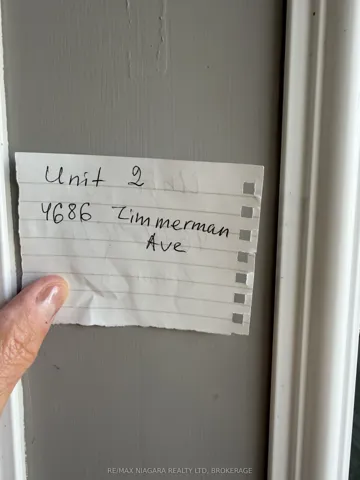 Unit 2
4686 Zimmerman
Ave
RE/MAX NIAGARA REALTY LTD, BROKERAGE